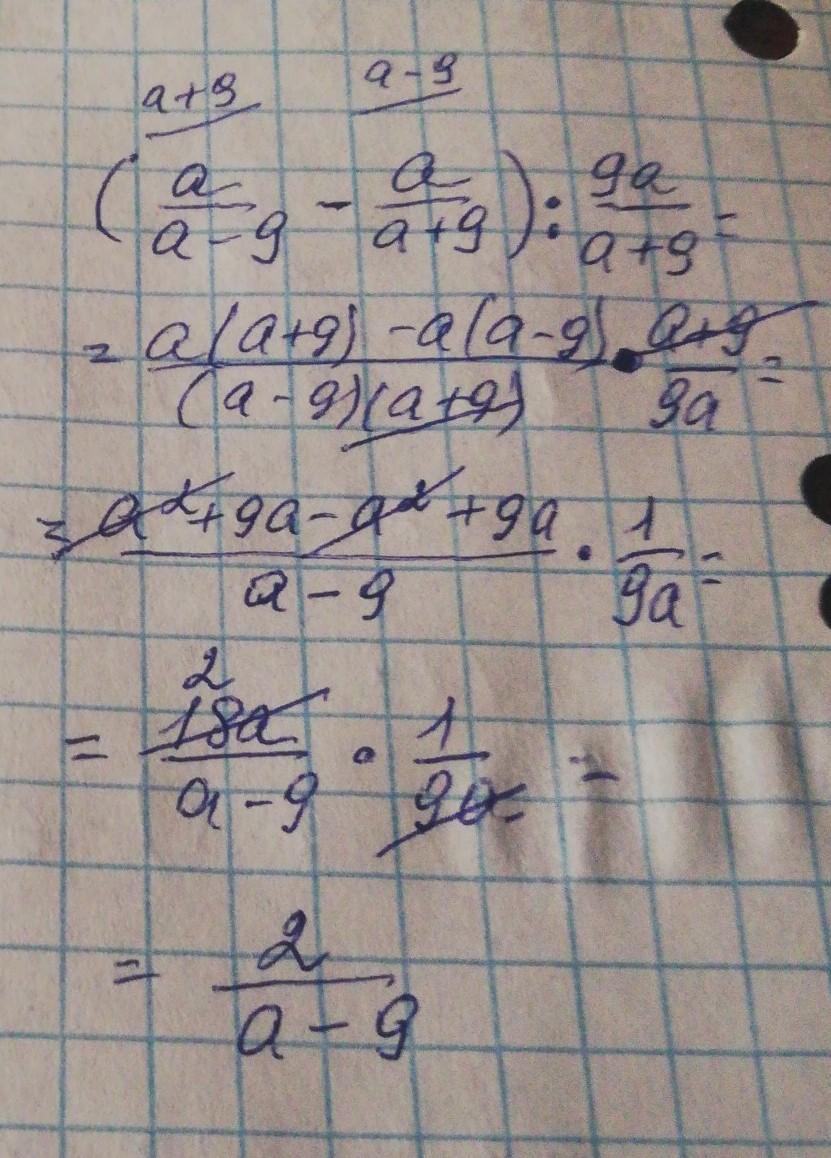 a+9 a-9
(a/(a-9) - a/(a+9)) : 9a/(a+9) =
= (a(a+9) - a(a-9))/((a-9)(a+9)) · (a+9)/9a =
= (a²+9a-a²+9a)/(a-9) · 1/9a =
2
= 18a/(a-9) · 1/9a =
= 2/(a-9)